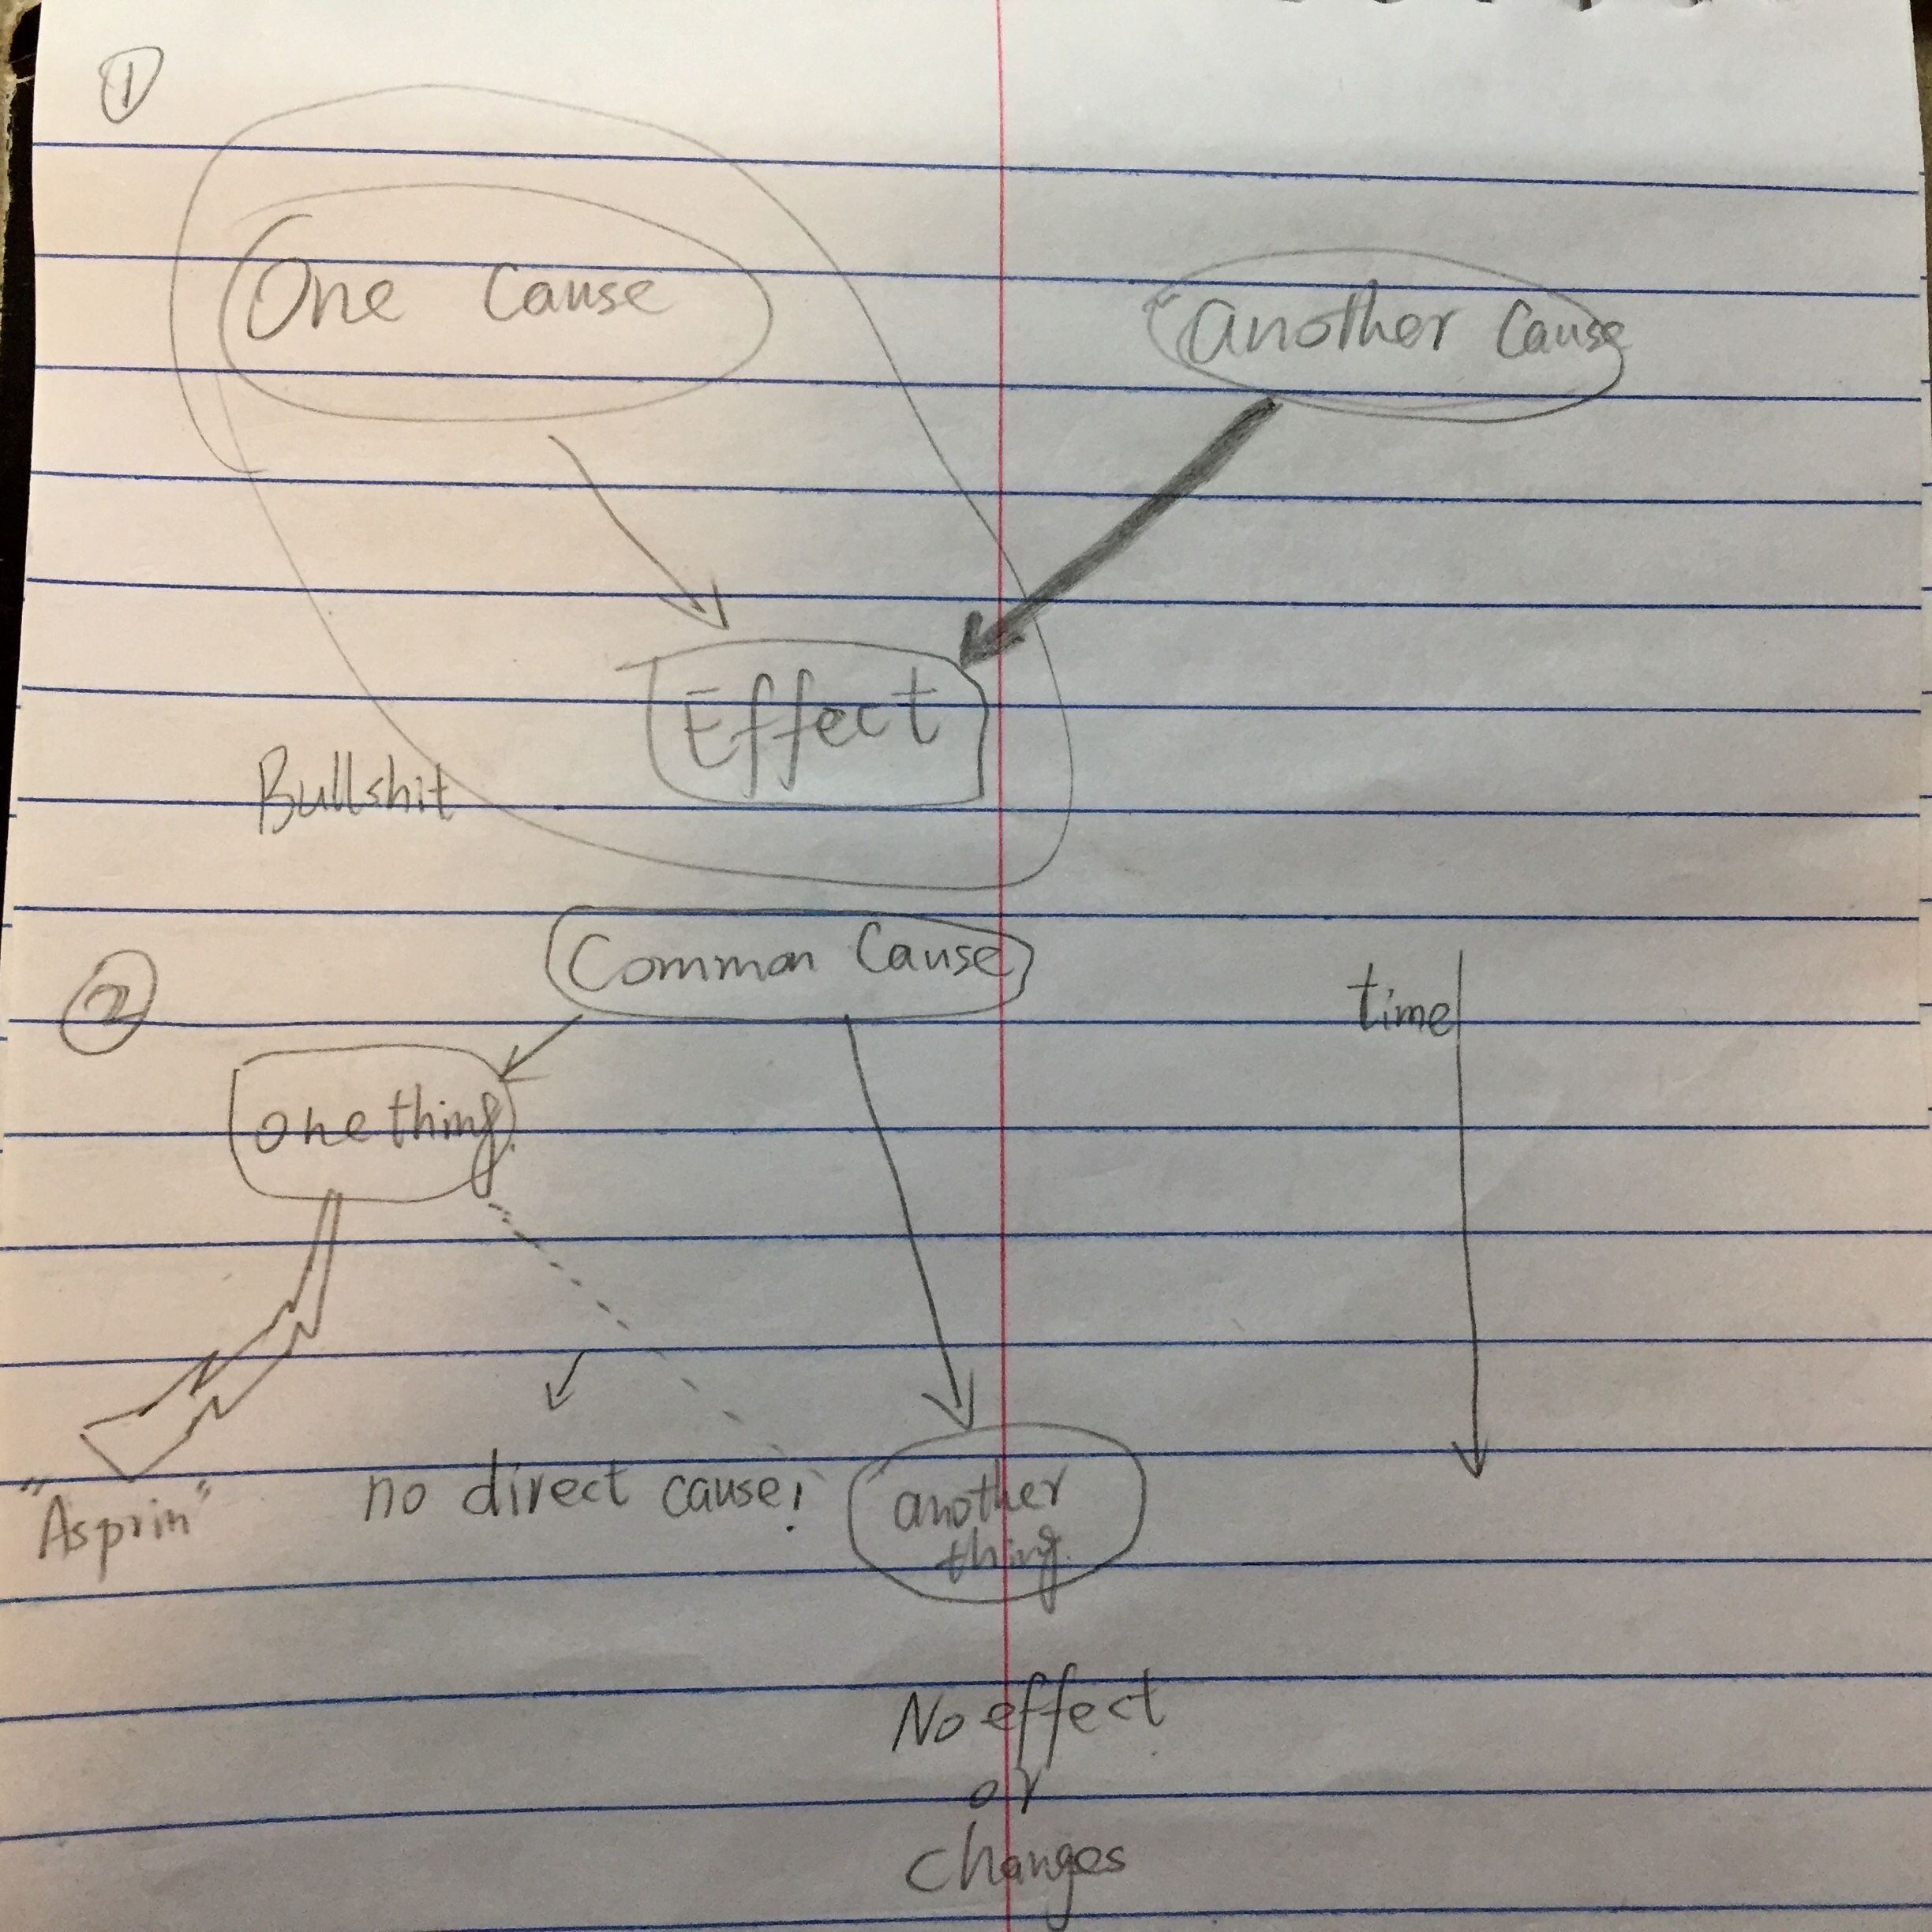 ①
One Cause
another Cause
Effect
Bullshit
②
Common Cause
time
one thing
"Asprin"
no direct cause!
another
thing
No effect
or
changes